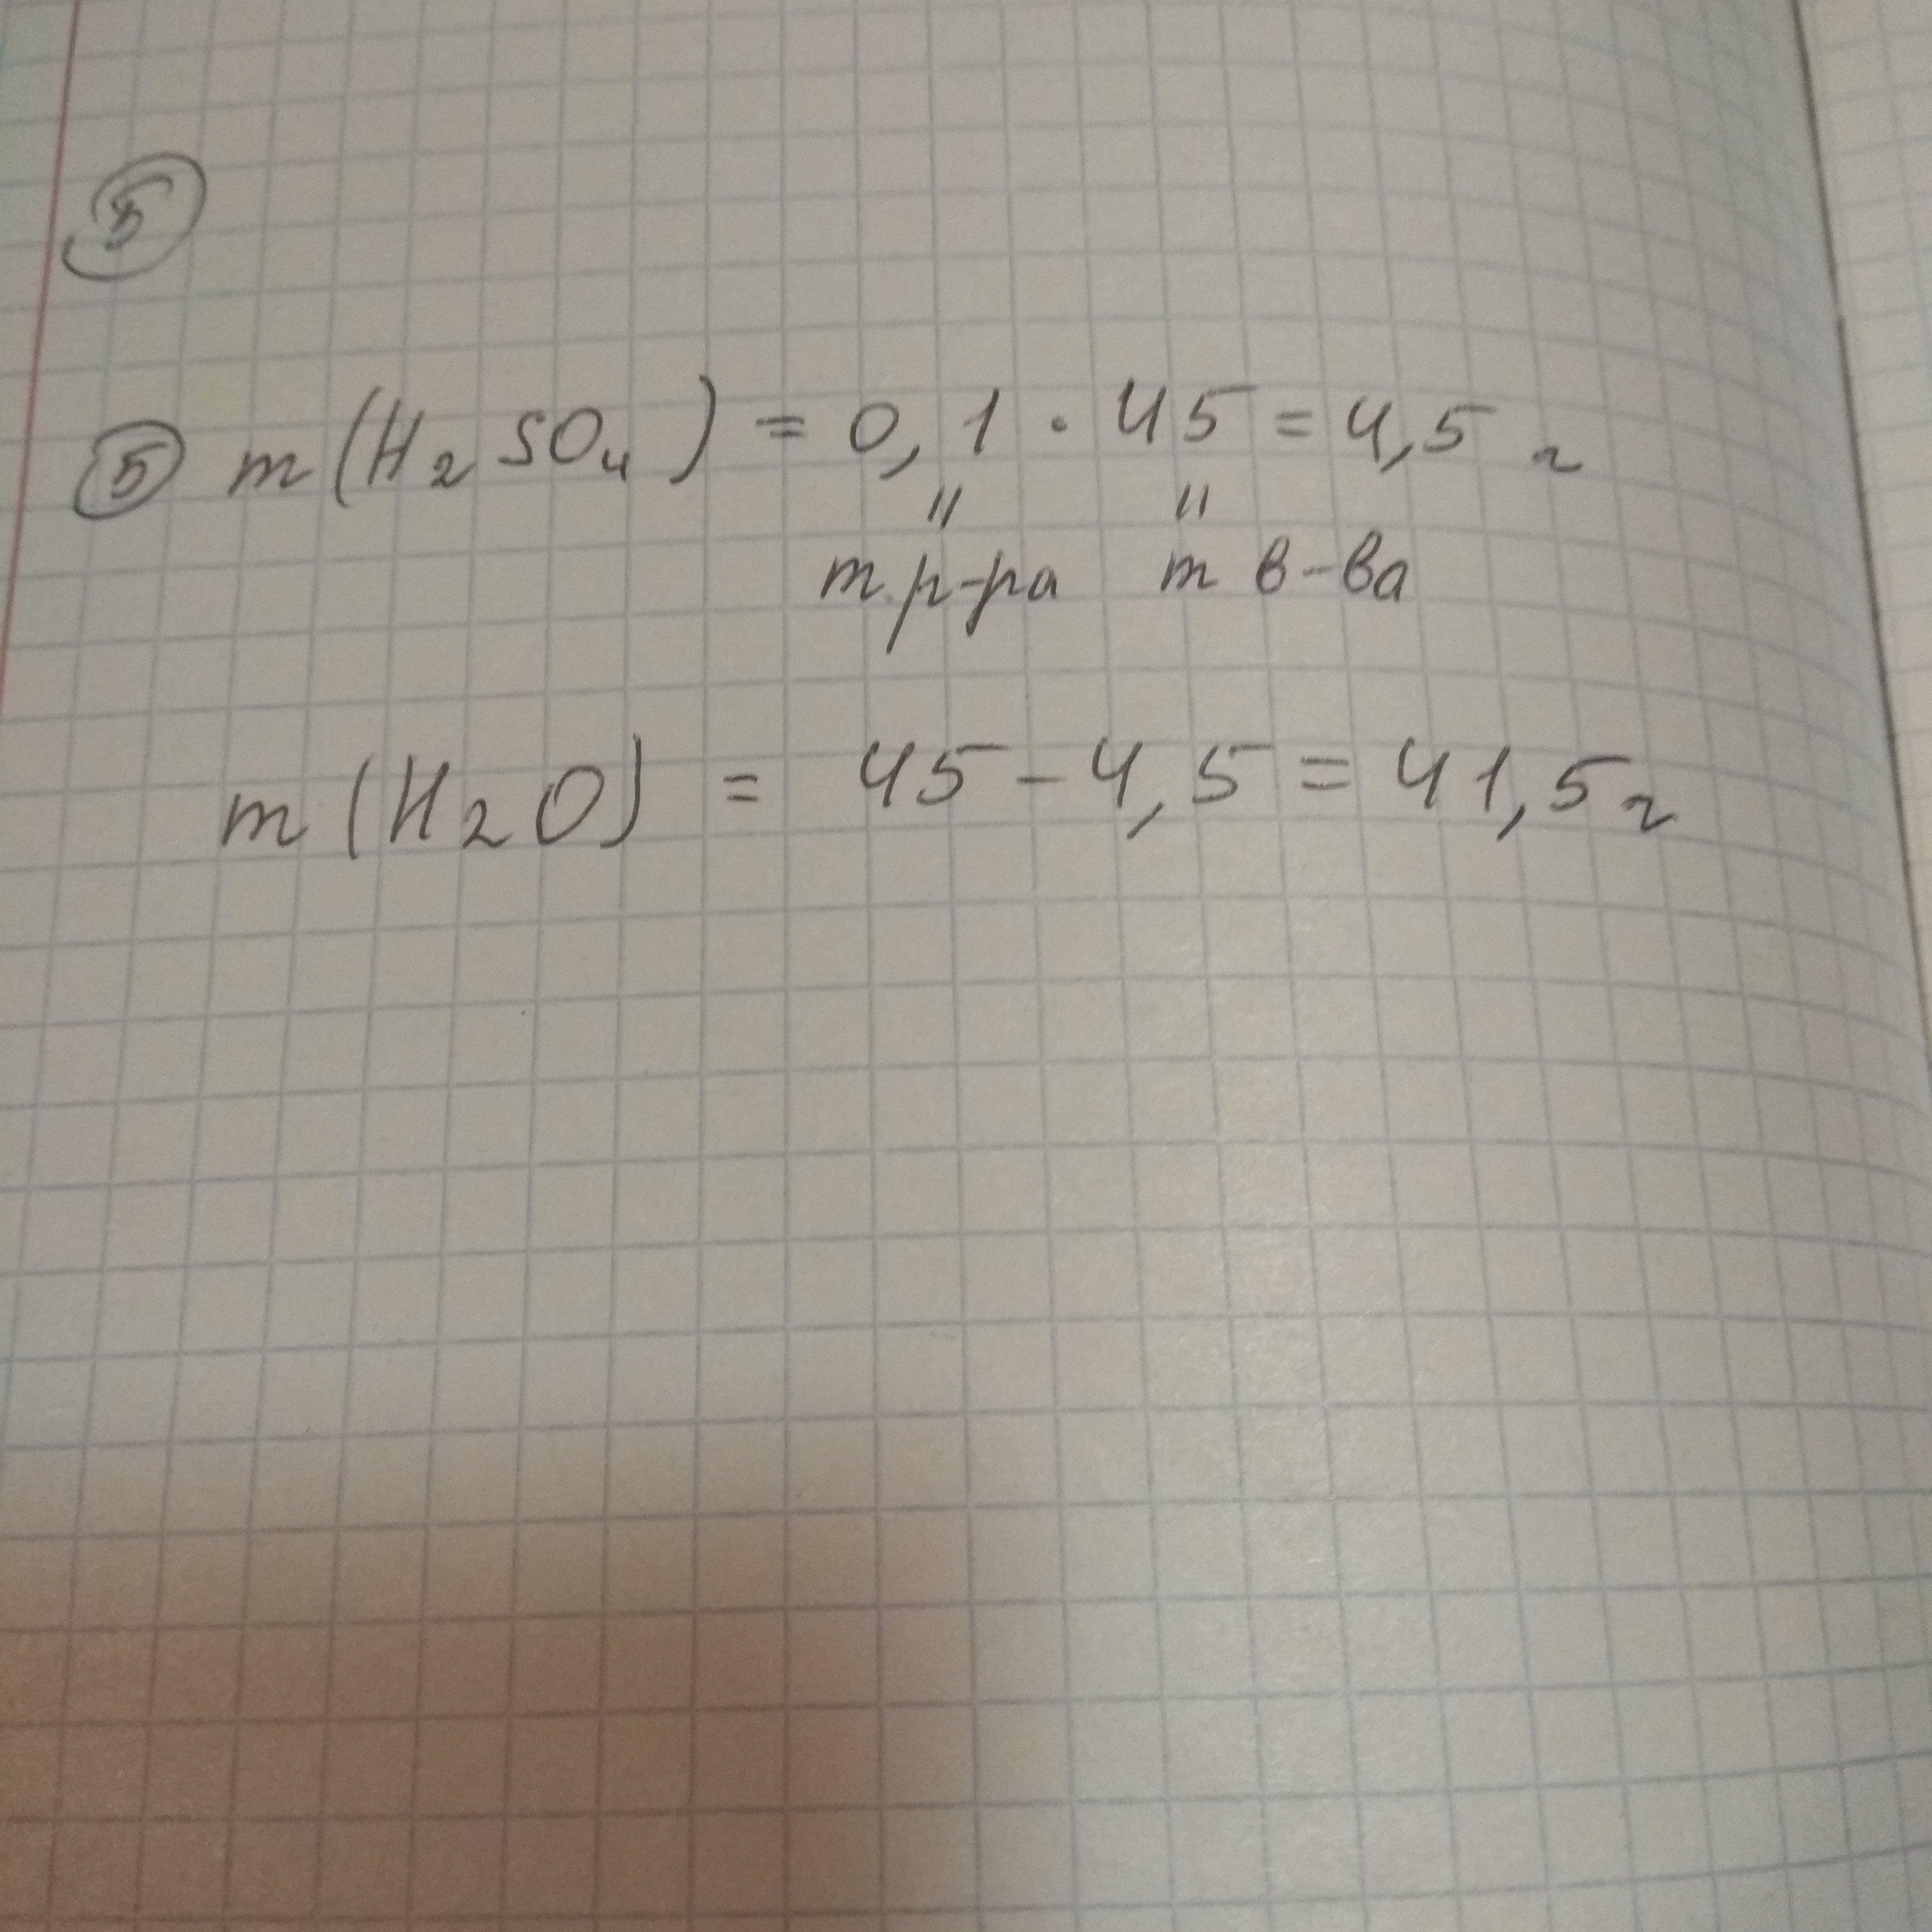 5
5 m(H₂SO₄) = 0,1 · 45 = 4,5 г
" "
m р-ра m в-ва
m(H₂O) = 45 - 4,5 = 41,5 г